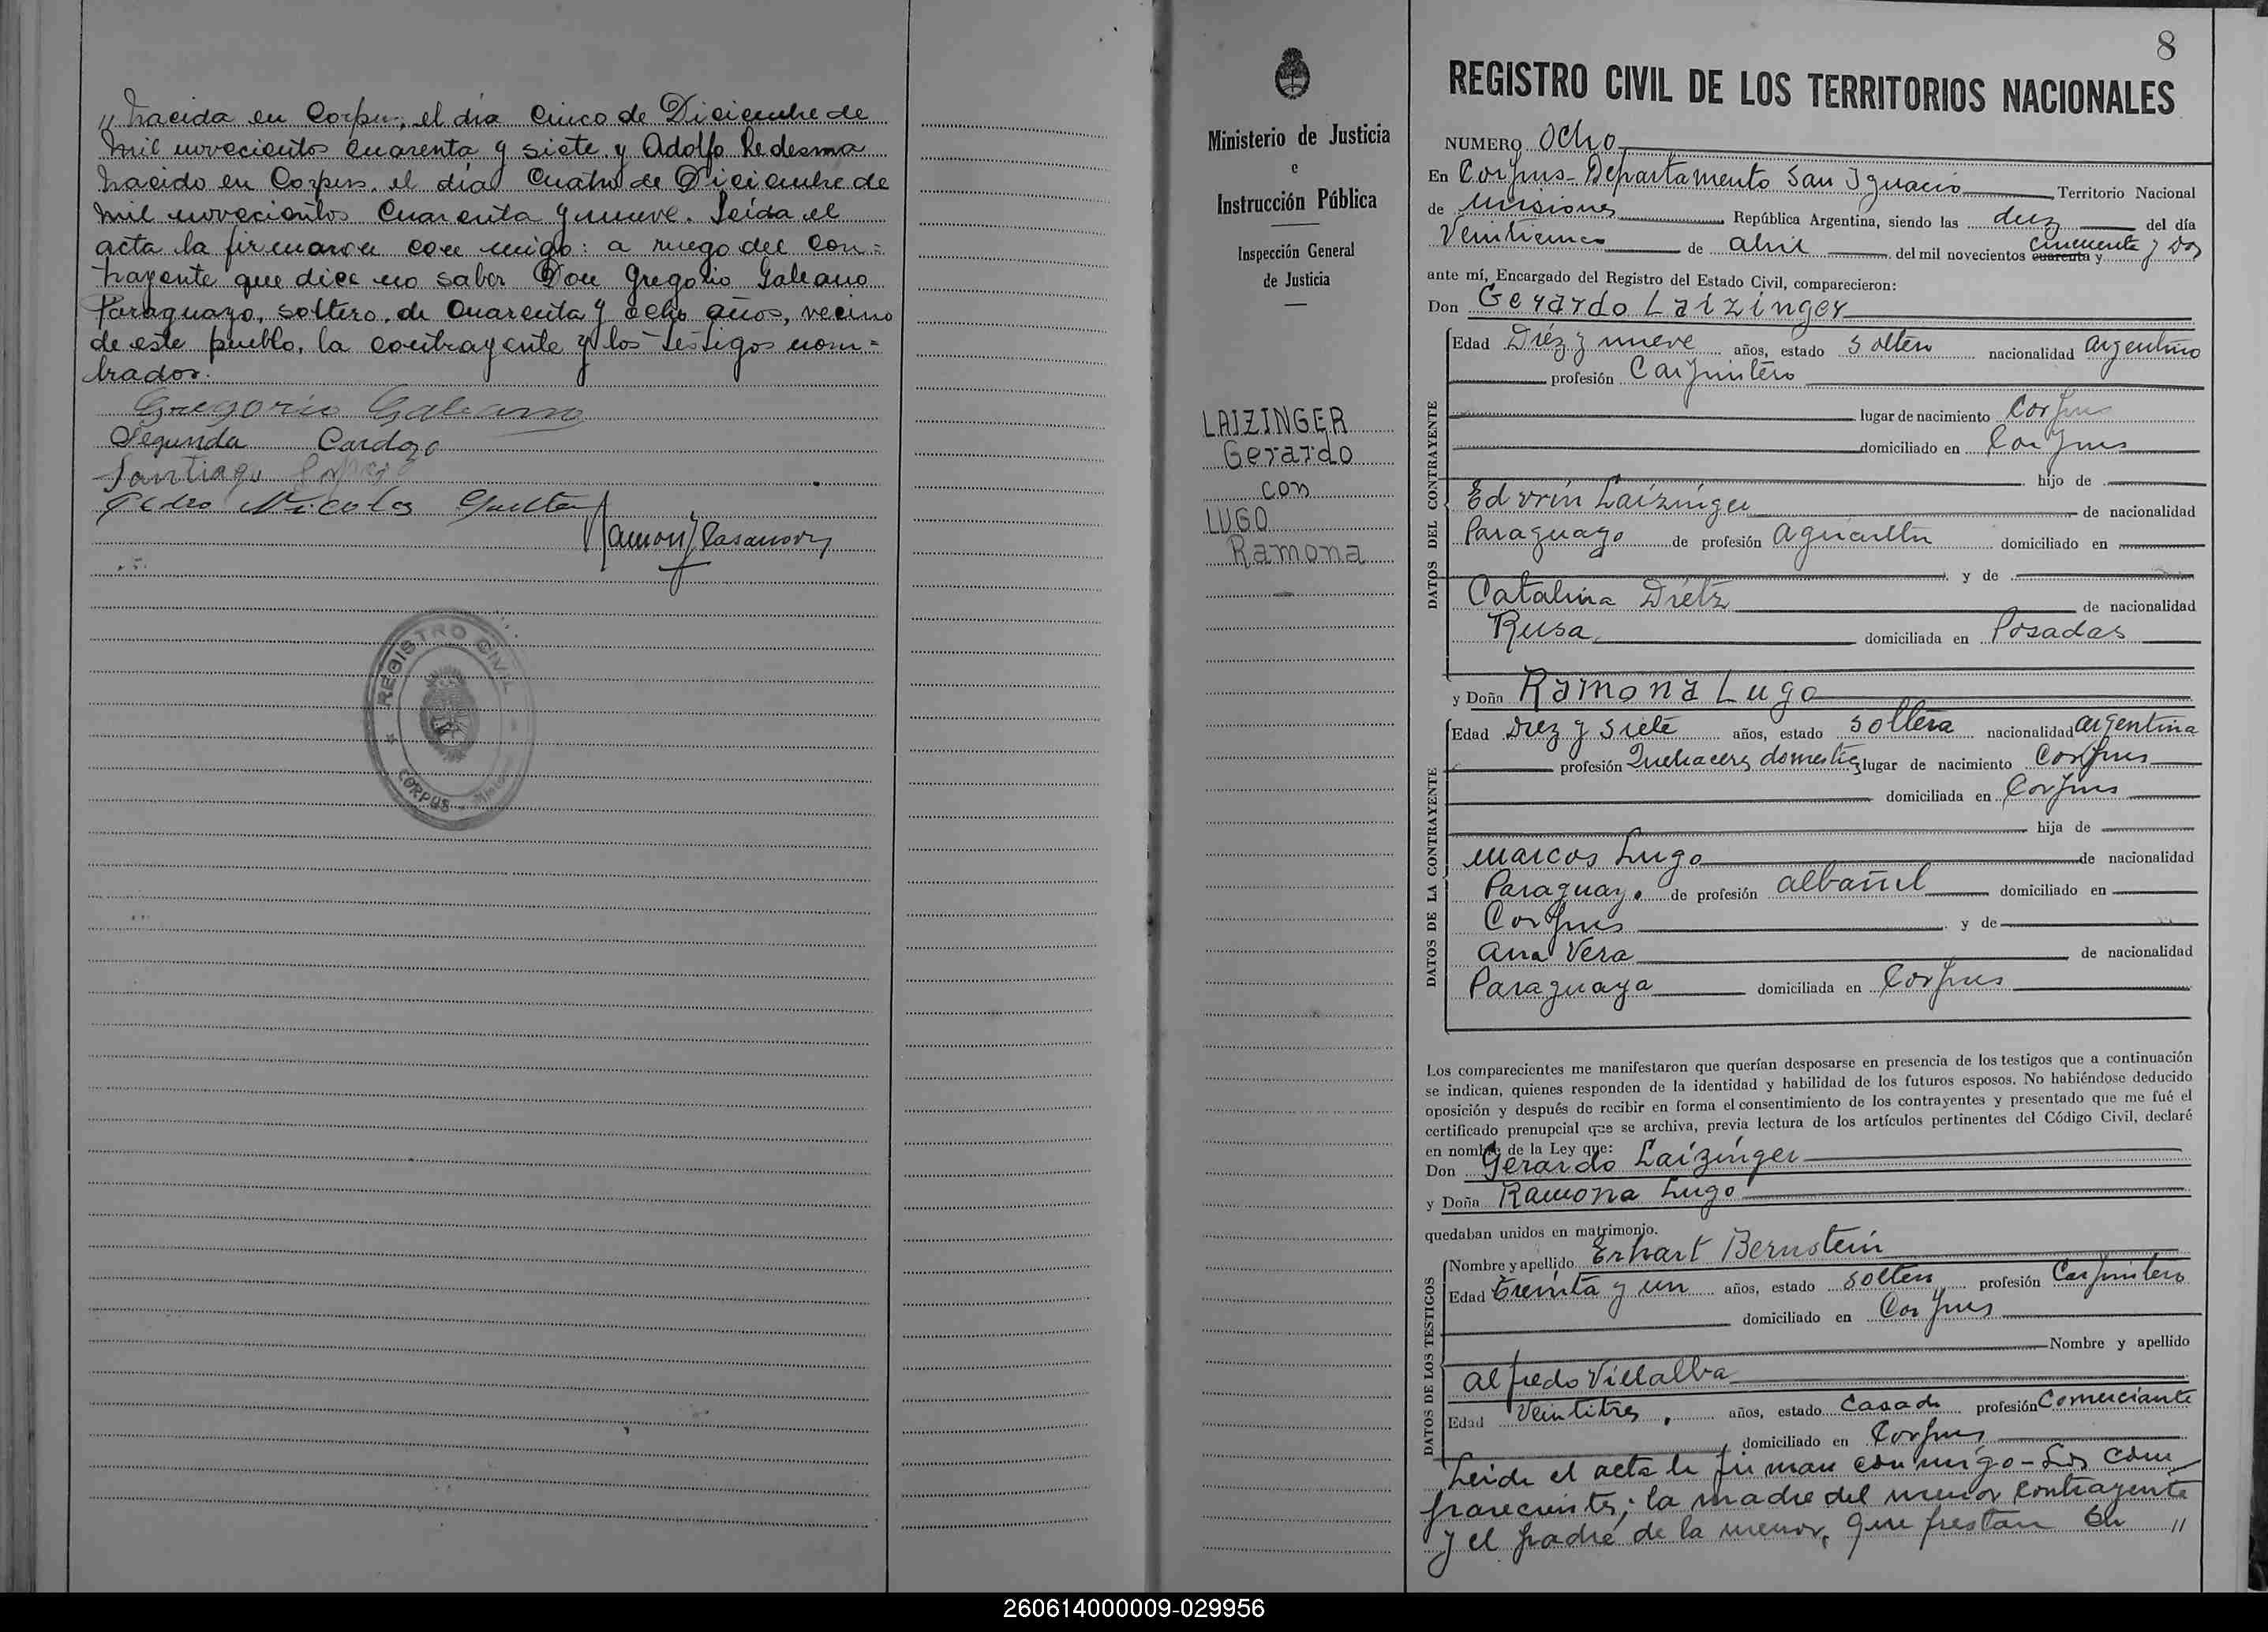 " nacida en Corpus, el día cinco de Diciembre de
mil novecientos cuarenta y siete y Adolfo Ledesma
nacido en Corpus, el día cuatro de Diciembre de
mil novecientos cuarenta y nueve. Leída el
acta la firmaron con migo: a ruego del con=
trayente que dice no saber Don Gregorio Galeano
Paraguayo, soltero, de cuarenta y ocho años, vecino
de este pueblo, la contrayente y los testigos nom=
brados.
Gregorio Galeano
Segunda Cardozo
Santiago
Pedro Nicolas
Ramon J Casanova
REGISTRO CIVIL
CORPUS - Misiones
Ministerio de Justicia
e
Instrucción Pública
Inspección General
de Justicia
LAIZINGER
Gerardo
con
LUGO
Ramona
8
REGISTRO CIVIL DE LOS TERRITORIOS NACIONALES
NUMERO Ocho
En Corpus - Departamento San Ignacio Territorio Nacional
de Misiones República Argentina, siendo las diez del día
Veinticinco de abril del mil novecientos cuarenta y cincuenta y dos
ante mí, Encargado del Registro del Estado Civil, comparecieron:
Don Gerardo Laizinger
DATOS DEL CONTRAYENTE
Edad Diéz y nueve años, estado soltero nacionalidad argentino
profesión Carpintero
lugar de nacimiento Corpus
domiciliado en Corpus
hijo de
Edvvin Laizinger de nacionalidad
Paraguayo de profesión agricultor domiciliado en
y de
Catalina Diétz de nacionalidad
Rusa domiciliada en Posadas
y Doña Ramona Lugo
DATOS DE LA CONTRAYENTE
Edad Diez y siete años, estado soltera nacionalidad argentina
profesión Quehaceres domesticos lugar de nacimiento Corpus
domiciliada en Corpus
hija de
Marcos Lugo de nacionalidad
Paraguayo de profesión albañil domiciliado en
Corpus y de
Ana Vera de nacionalidad
Paraguaya domiciliada en Corpus
Los comparecientes me manifestaron que querían desposarse en presencia de los testigos que a continuación
se indican, quienes responden de la identidad y habilidad de los futuros esposos. No habiéndose deducido
oposición y después de recibir en forma el consentimiento de los contrayentes y presentado que me fué el
certificado prenupcial que se archiva, previa lectura de los artículos pertinentes del Código Civil, declaré
en nombre de la Ley que:
Don Gerardo Laizinger
y Doña Ramona Lugo
quedaban unidos en matrimonio.
DATOS DE LOS TESTIGOS
Nombre y apellido Erhart Bernstein
Edad treinta y un años, estado soltero profesión Carpintero
domiciliado en Corpus
Nombre y apellido
Alfredo Villalba
Edad Veintitres años, estado Casado profesión Comerciante
domiciliado en Corpus
Leida el acta la firman con migo - Los com
parecientes; la madre del menor contrayente
y el padre de la menor, que prestan su "
260614000009-029956